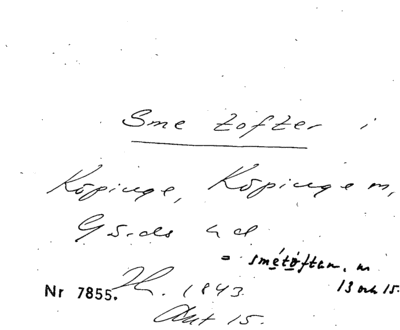 Sme tofter i
Köpinge, Köpinge m,
Gärds hd
= smétòftan, m
13 och 15.
Nr 7855. 1843.
Akt 15.